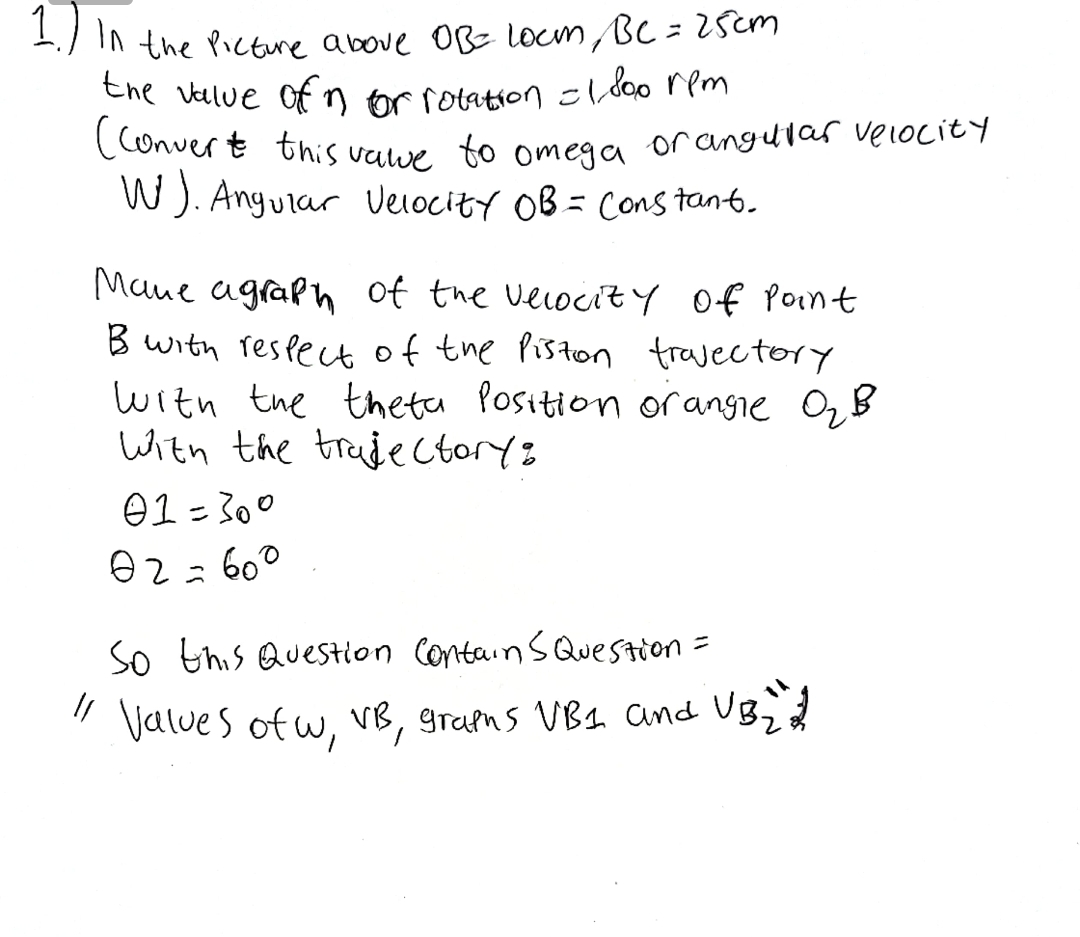 1.) In the Picture above OB= 10cm, BC = 25cm
the value of n or rotation = 1.800 rpm
(Convert this value to omega or angular velocity
W ). Angular Velocity OB = Constant.
Make a graph of the velocity of Point
B with respect of the Piston trajectory
With the theta Position or angle O2B
With the trajectory:
θ1 = 30°
θ2 = 60°
So this Question Contains Question =
" Values of w, VB, graphs VB1 and VB2"